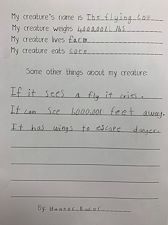 My creature's name is The flying Cow
My creature weighs 4,000,001 LBS
My creature lives farm
My creature eats corn
Some other things about my creature:
If it sees a fly it cries.
It can see 1,000,001 feet away.
It has wings to escape danger.
By: